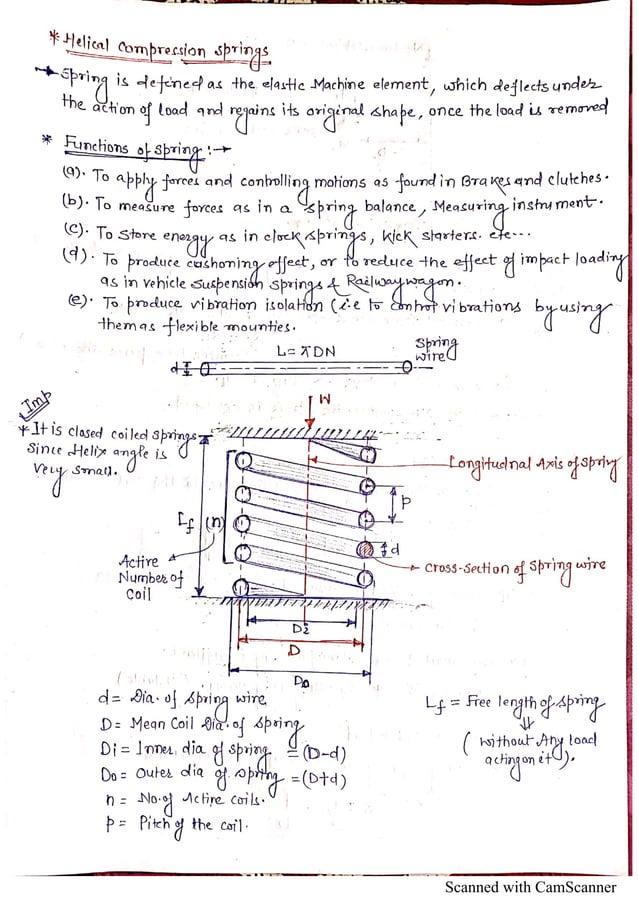 * Helical compression springs
→ Spring is defined as the elastic Machine element, which deflects under
the action of load and regains its original shape, once the load is removed
* Functions of spring :→
(a). To apply forces and controlling motions as found in Brakes and clutches.
(b). To measure forces as in a spring balance, Measuring instrument.
(c). To store energy as in clock springs, kick starters. etc...
(d). To produce cushoning effect, or to reduce the effect of impact loading
as in vehicle suspension springs & Railway wagon.
(e). To produce vibration isolation (i.e to control vibrations by using
them as flexible mounties.
L = πDN
Spring
wire
d
Imp
W
* It is closed coiled springs
Since Helix angle is
very small.
Longitudnal Axis of spring
p
Lf (n)
d
Active
Number of
coil
cross-section of spring wire
Di
D
Do
d = Dia. of spring wire
D = Mean Coil Dia. of spring
Di = Inner dia of spring = (D-d)
Do = Outer dia of spring = (D+d)
n = No. of Active coils.
p = Pitch of the coil.
Lf = Free length of spring
⇓
( without Any load
acting on it ).
Scanned with CamScanner